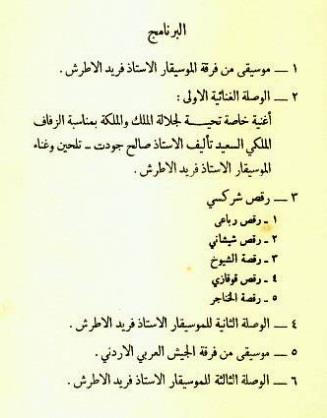 البرنامج
١ — موسيقى من فرقة الموسيقار الاستاذ فريد الاطرش .
٢ — الوصلة الغنائية الاولى :
أغنية خاصة تحيـــة لجلالة الملك والملكة بمناسبة الزفاف
الملكي السعيد تأليف الاستاذ صالح جودت ـ تلحين وغناء
الموسيقار الاستاذ فريد الاطرش .
٣ — رقص شركسي
١ ـ رقص رباعى
٢ ـ رقص شيشاني
٣ ـ رقصة الشيوخ
٤ ـ رقص قوقازي
٥ ـ رقصة الخناجر
٤ — الوصلة الثانية للموسيقار الاستاذ فريد الاطرش .
٥ — موسيقى من فرقة الجيش العربي الاردني .
٦ — الوصلة الثالثة للموسيقار الاستاذ فريد الاطرش .